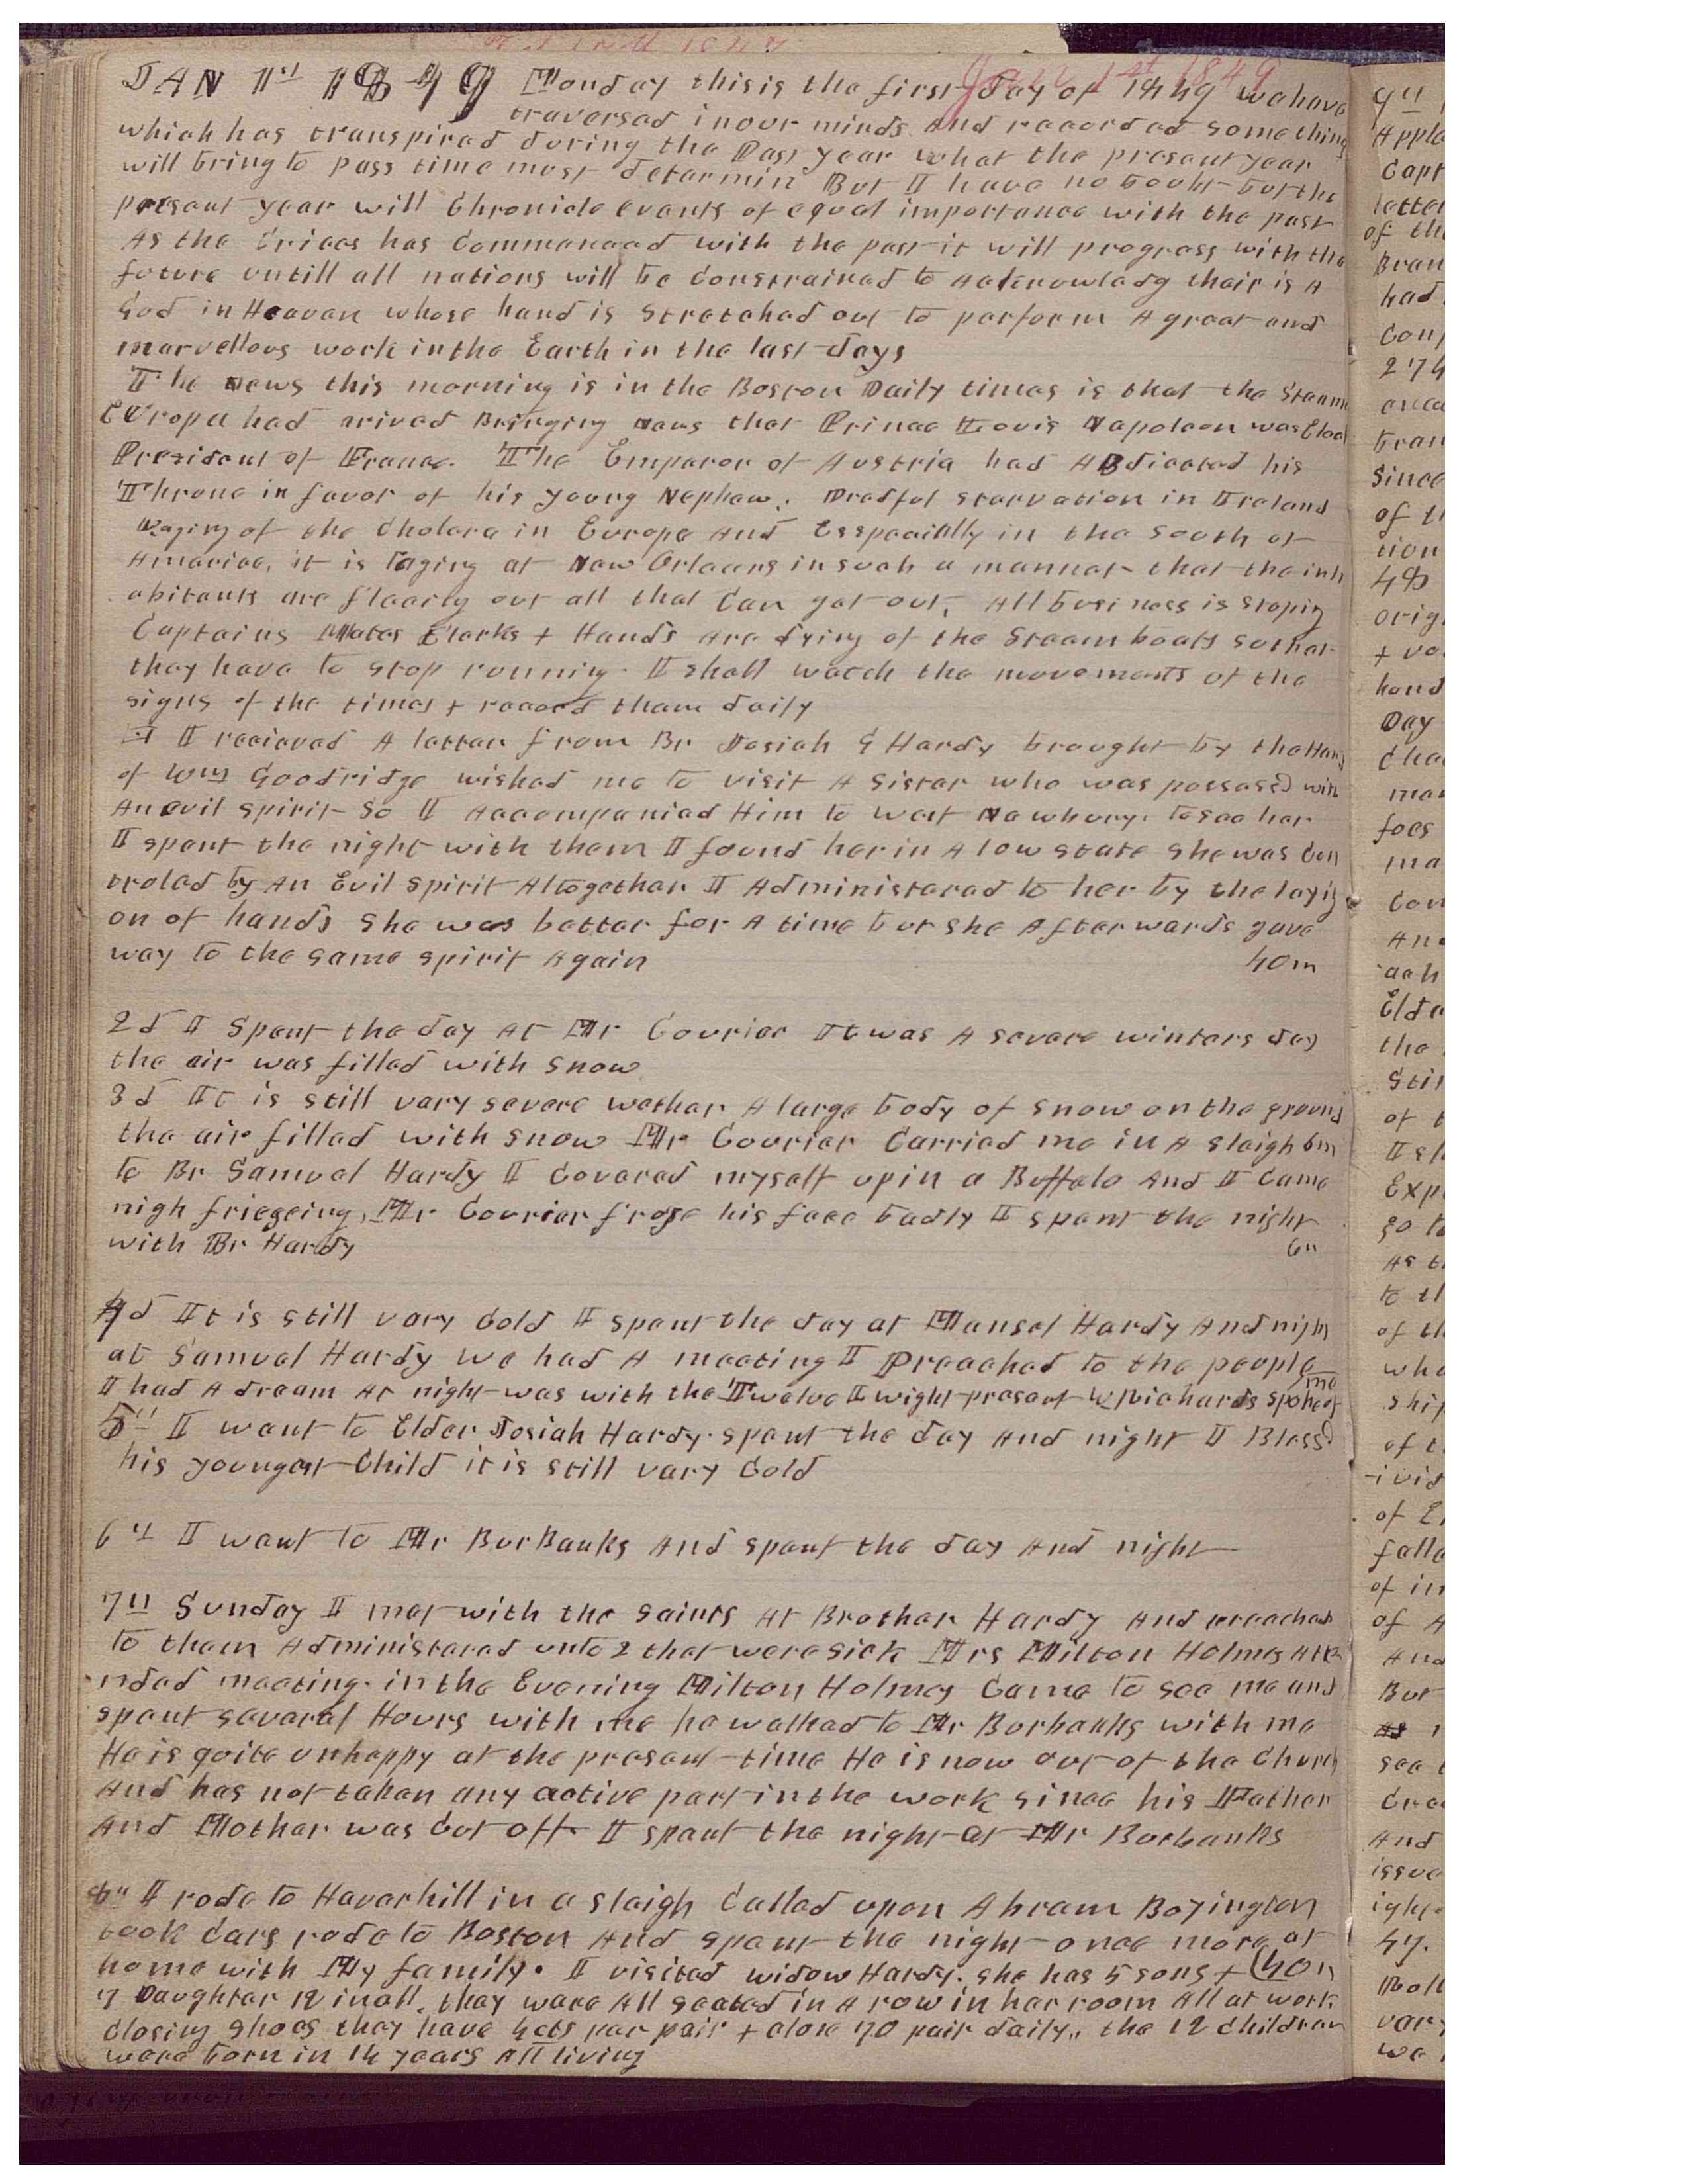 Jan 1st 1849
JAN 1st 1849 Monday this is the first day of 1849 we have
traversed in our minds and recorded something
which has transpired during the Past year what the present year
will bring to pass time must determin But I have no doubt but the
present year will Chronicle events of equal importance with the past
As the Crices has Commenced with the past it will progress with the
future untill all nations will be Constrained to acknowledg their is A
God in Heaven whose hand is stretched out to perform A great and
marvellous work in the Earth in the last days
The news this morning is in the Boston Daily times is that the steam
Europa had arived Bringing news that Prince Louis Napoleon was Elec
President of France. The Emperor of Austria had Abdicated his
Throne in favor of his young Nephew. Dredful starvation in Ireland
Raging of the Cholera in Europe and Esspecially in the South of
America, it is raging at New Orleans in such a manner that the inh
abitants are fleeing out all that Can get out, All business is stoping
Captains Mates Clerks & Hands are dying of the Steem boats so that
they have to stop runnig. I shall watch the movements of the
signs of the times & record them daily
I recieved A letter from Br Josiah G Hardy brought by the Hand
of Wm Goodridge wished me to visit A Sister who was possased with
An evil spirit So I Accompanied Him to west Newbury. to see her
I spent the night with them I found her in A low state she was Con
troled by An Evil spirit Altogether I Administered to her by the laying
on of hands she was better for A time but she Afterwards gave
way to the same spirit Again 40m
2d I Spent the day At Mr Courier It was A severe winters day
the air was filled with snow
3d It is still vary severe wether A large body of snow on the ground
the air filled with snow Mr Courier Carried me in A sleigh 6m
to Br Samuel Hardy I Covered myself up in a Buffalo And I Came
nigh friezeing, Mr Courier froze his face badly I spent the night
with Br Hardy 6m
4d It is still vary Cold I spent the day at Mansel Hardy And night
at Samuel Hardy we had A meeting I Preached to the people
I had A dream At night was with the Twelve L wight present W Richards spoke of me
5th I went to Elder Josiah Hardy. spent the day and night I Blessd
his youngest Child it is still vary Cold
6th I went to Mr BurBanks And spent the day And night
7th Sunday I met with the saints At Brother Hardy And preached
to them Administered unto 2 that were sick Mrs Milton Holmes atte
nded meeting. in the Evening Milton Holmes Came to see me and
spent several Hours with me he walked to Mr Burbanks with me
He is quite unhappy at the present time He is now out of the Church
And has not taken any active part in the work since his Father
And Mother was Cut off I spent the night at Mr Burbanks
8th I rode to Haverhill in a sleigh Called upon Abram Boyington
took Cars rode to Boston And spent the night once more at
home with My family. I visited widow Hardy. she has 5 sons & (40m
7 Daughter 12 in all. they ware All seated in A row in her room All at work
Closing shoes they have 4cts per pair & close 70 pair daily,, the 12 children
were born in 14 years All living